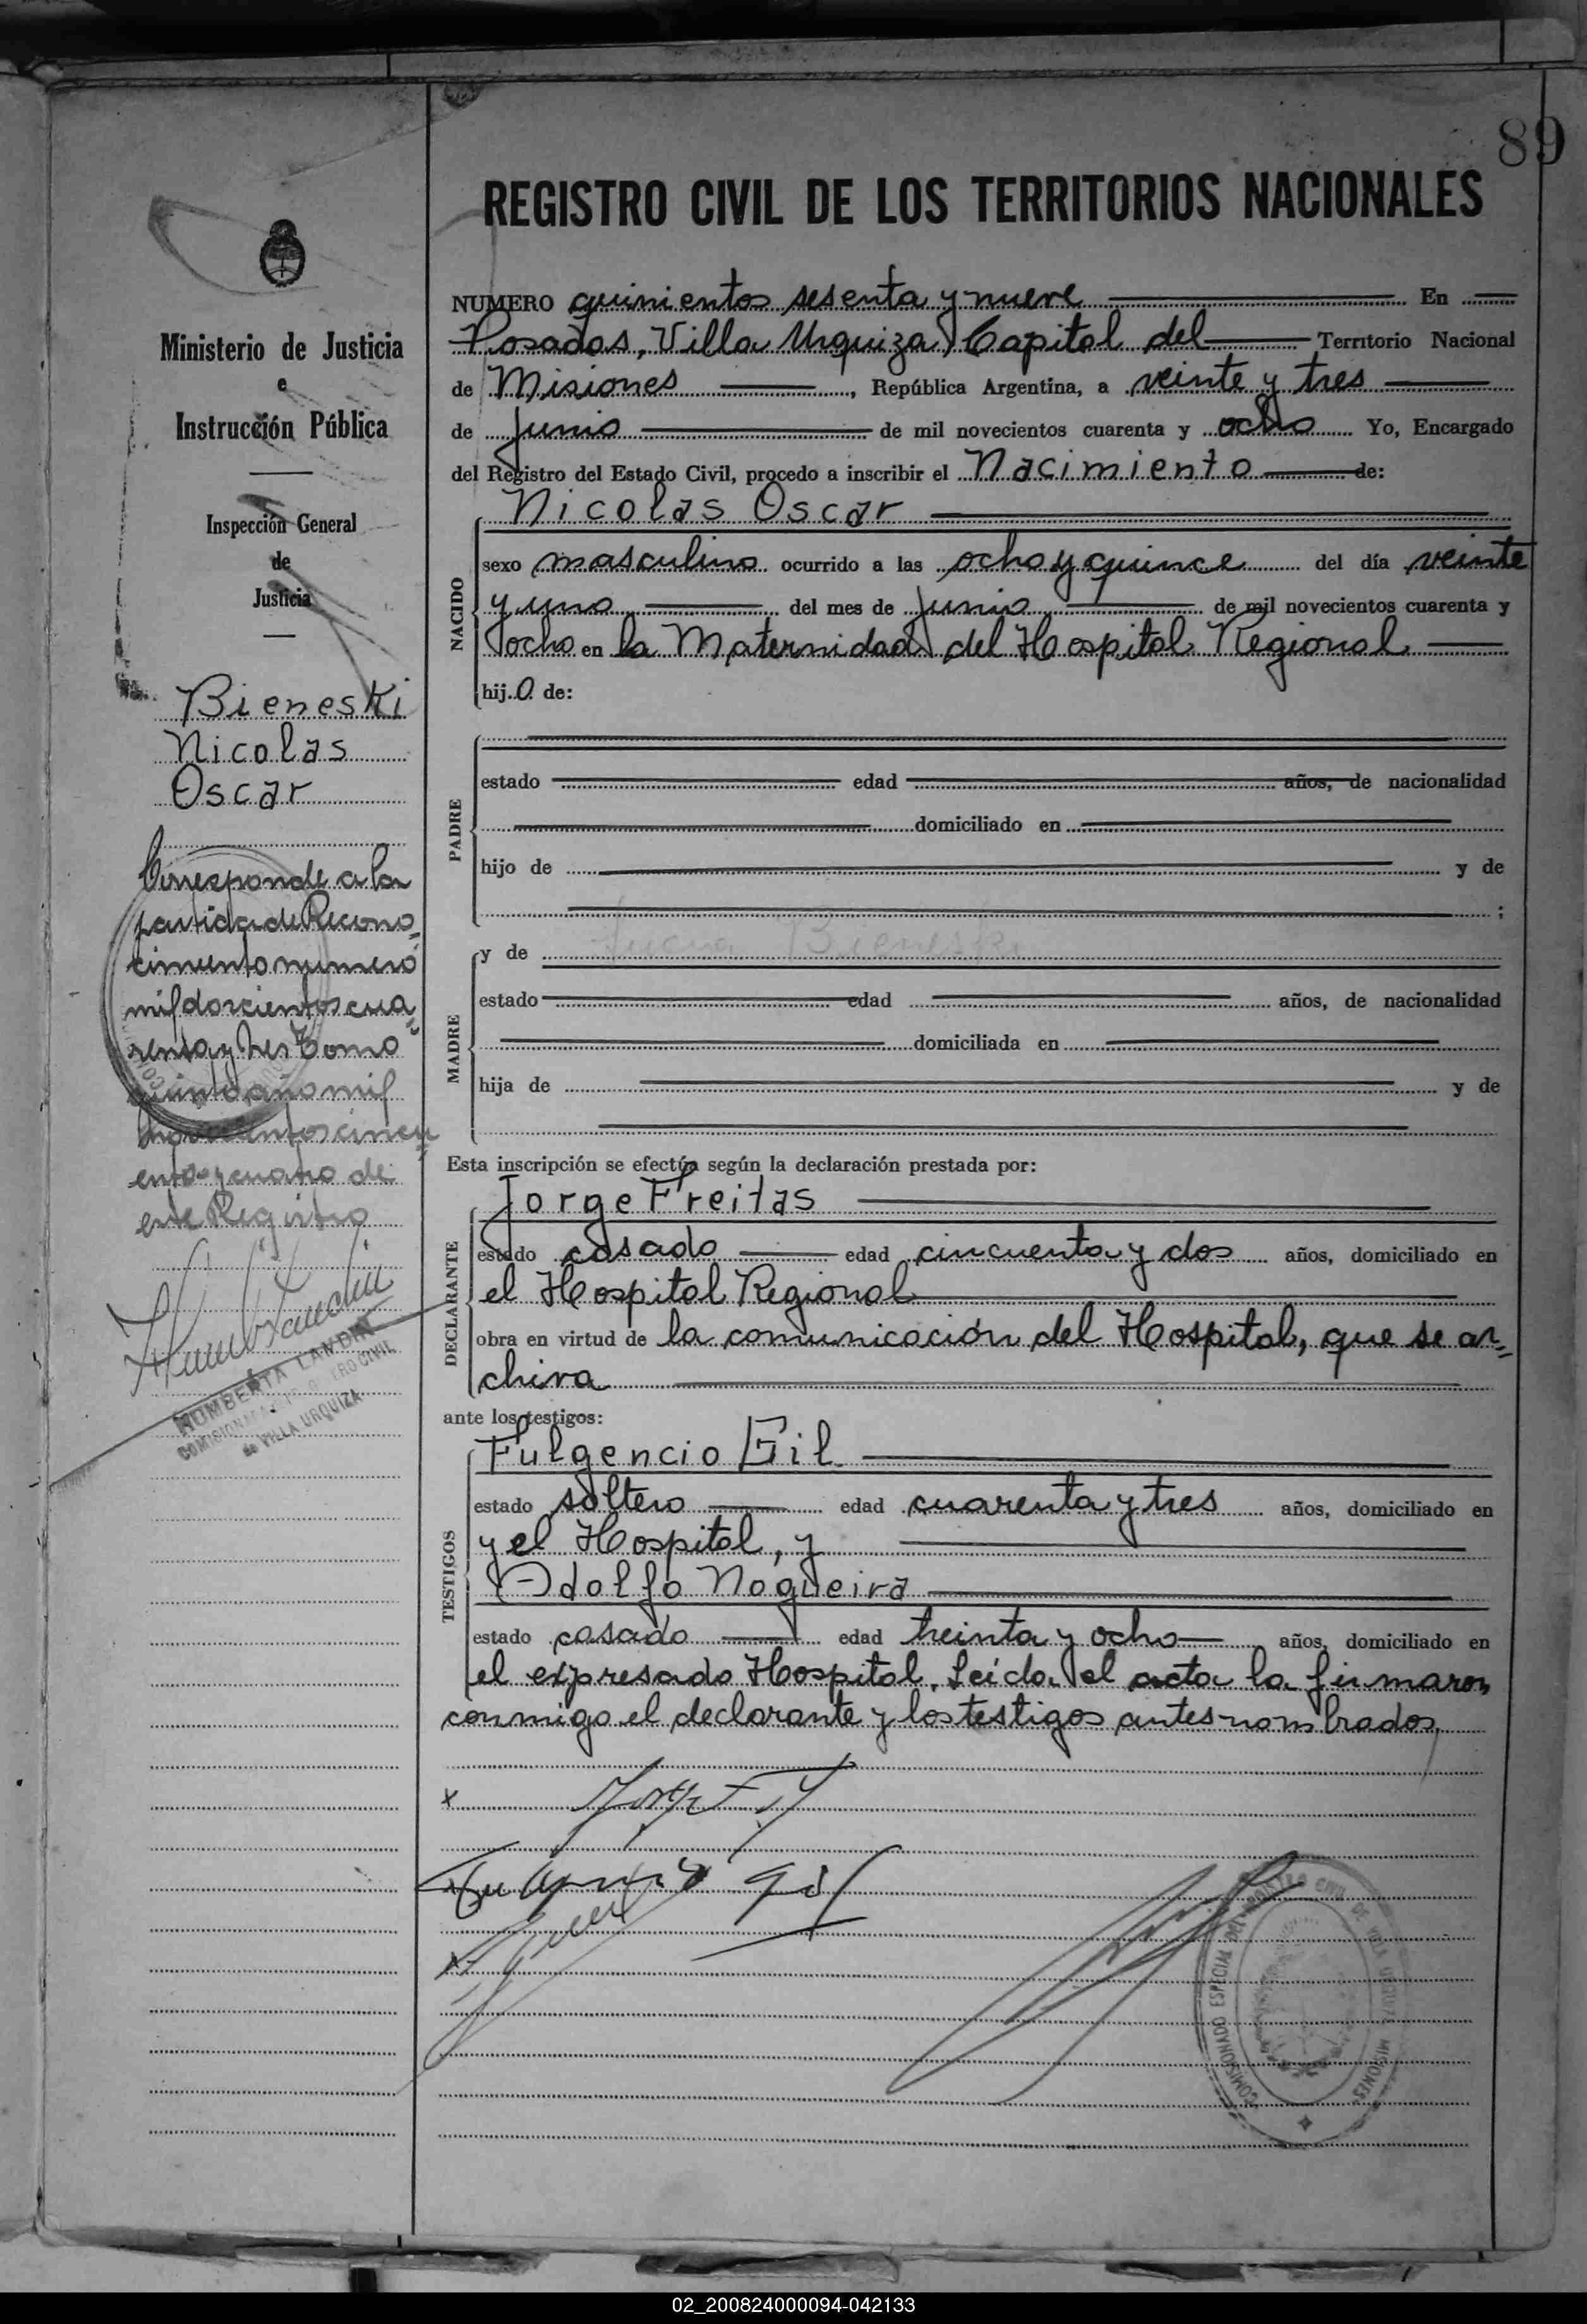 89
REGISTRO CIVIL DE LOS TERRITORIOS NACIONALES
Ministerio de Justicia
e
Instrucción Pública
Inspección General
de
Justicia
Bieneski
Nicolas
Oscar
Corresponde a la
partida de Recono-
cimiento numero
mil doscientos cua-
renta y tres Tomo
quinto año mil
novecientos cincu
enta y cuatro de
este Registro
HUMBERTA LANDIN
COMISIONADA
REGISTRO CIVIL
de VILLA URQUIZA
NUMERO quinientos sesenta y nueve En
Posadas, Villa Urquiza, Capital del Territorio Nacional
de Misiones, República Argentina, a veinte y tres
de Junio de mil novecientos cuarenta y ocho Yo, Encargado
del Registro del Estado Civil, procedo a inscribir el Nacimiento de:
NACIDO
Nicolas Oscar
sexo masculino ocurrido a las ocho y quince del día veinte
y uno del mes de Junio de mil novecientos cuarenta y
ocho en la Maternidad del Hospital Regional
hijo de:
PADRE
estado edad años, de nacionalidad
domiciliado en
hijo de y de
;
MADRE
y de Bieneski
estado edad años, de nacionalidad
domiciliada en
hija de y de
Esta inscripción se efectúa según la declaración prestada por:
DECLARANTE
Jorge Freitas
estado casado edad cincuenta y dos años, domiciliado en
el Hospital Regional
obra en virtud de la comunicación del Hospital, que se ar=
chiva
ante los testigos:
TESTIGOS
Fulgencio Gil
estado soltero edad cuarenta y tres años, domiciliado en
y el Hospital, y
Adolfo Nogueira
estado casado edad treinta y ocho años, domiciliado en
el expresado Hospital. Leida el acta la firmaron
conmigo el declarante y los testigos antes nombrados,
x
COMISIONADO ESPECIAL DEL REGISTRO CIVIL DE VILLA URQUIZA MISIONES
02_200824000094-042133